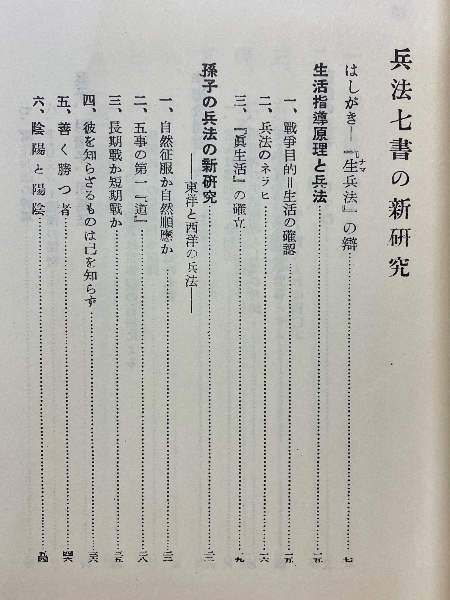 兵法七書の新研究
はしがき―『生兵法』の辯……七
ナマ
生活指導原理と兵法……一五
一、戰爭目的＝生活の確認……一五
二、兵法のネラヒ……一六
三、『眞生活』の確立……一九
孫子の兵法の新研究……二二
――東洋と西洋の兵法――
一、自然征服か自然順應か……二二
二、五事の第一『道』……二八
三、長期戰か短期戰か……三五
四、彼を知らざるものは己を知らず……三六
五、善く勝つ者……四六
六、陰陽と陽陰……五四